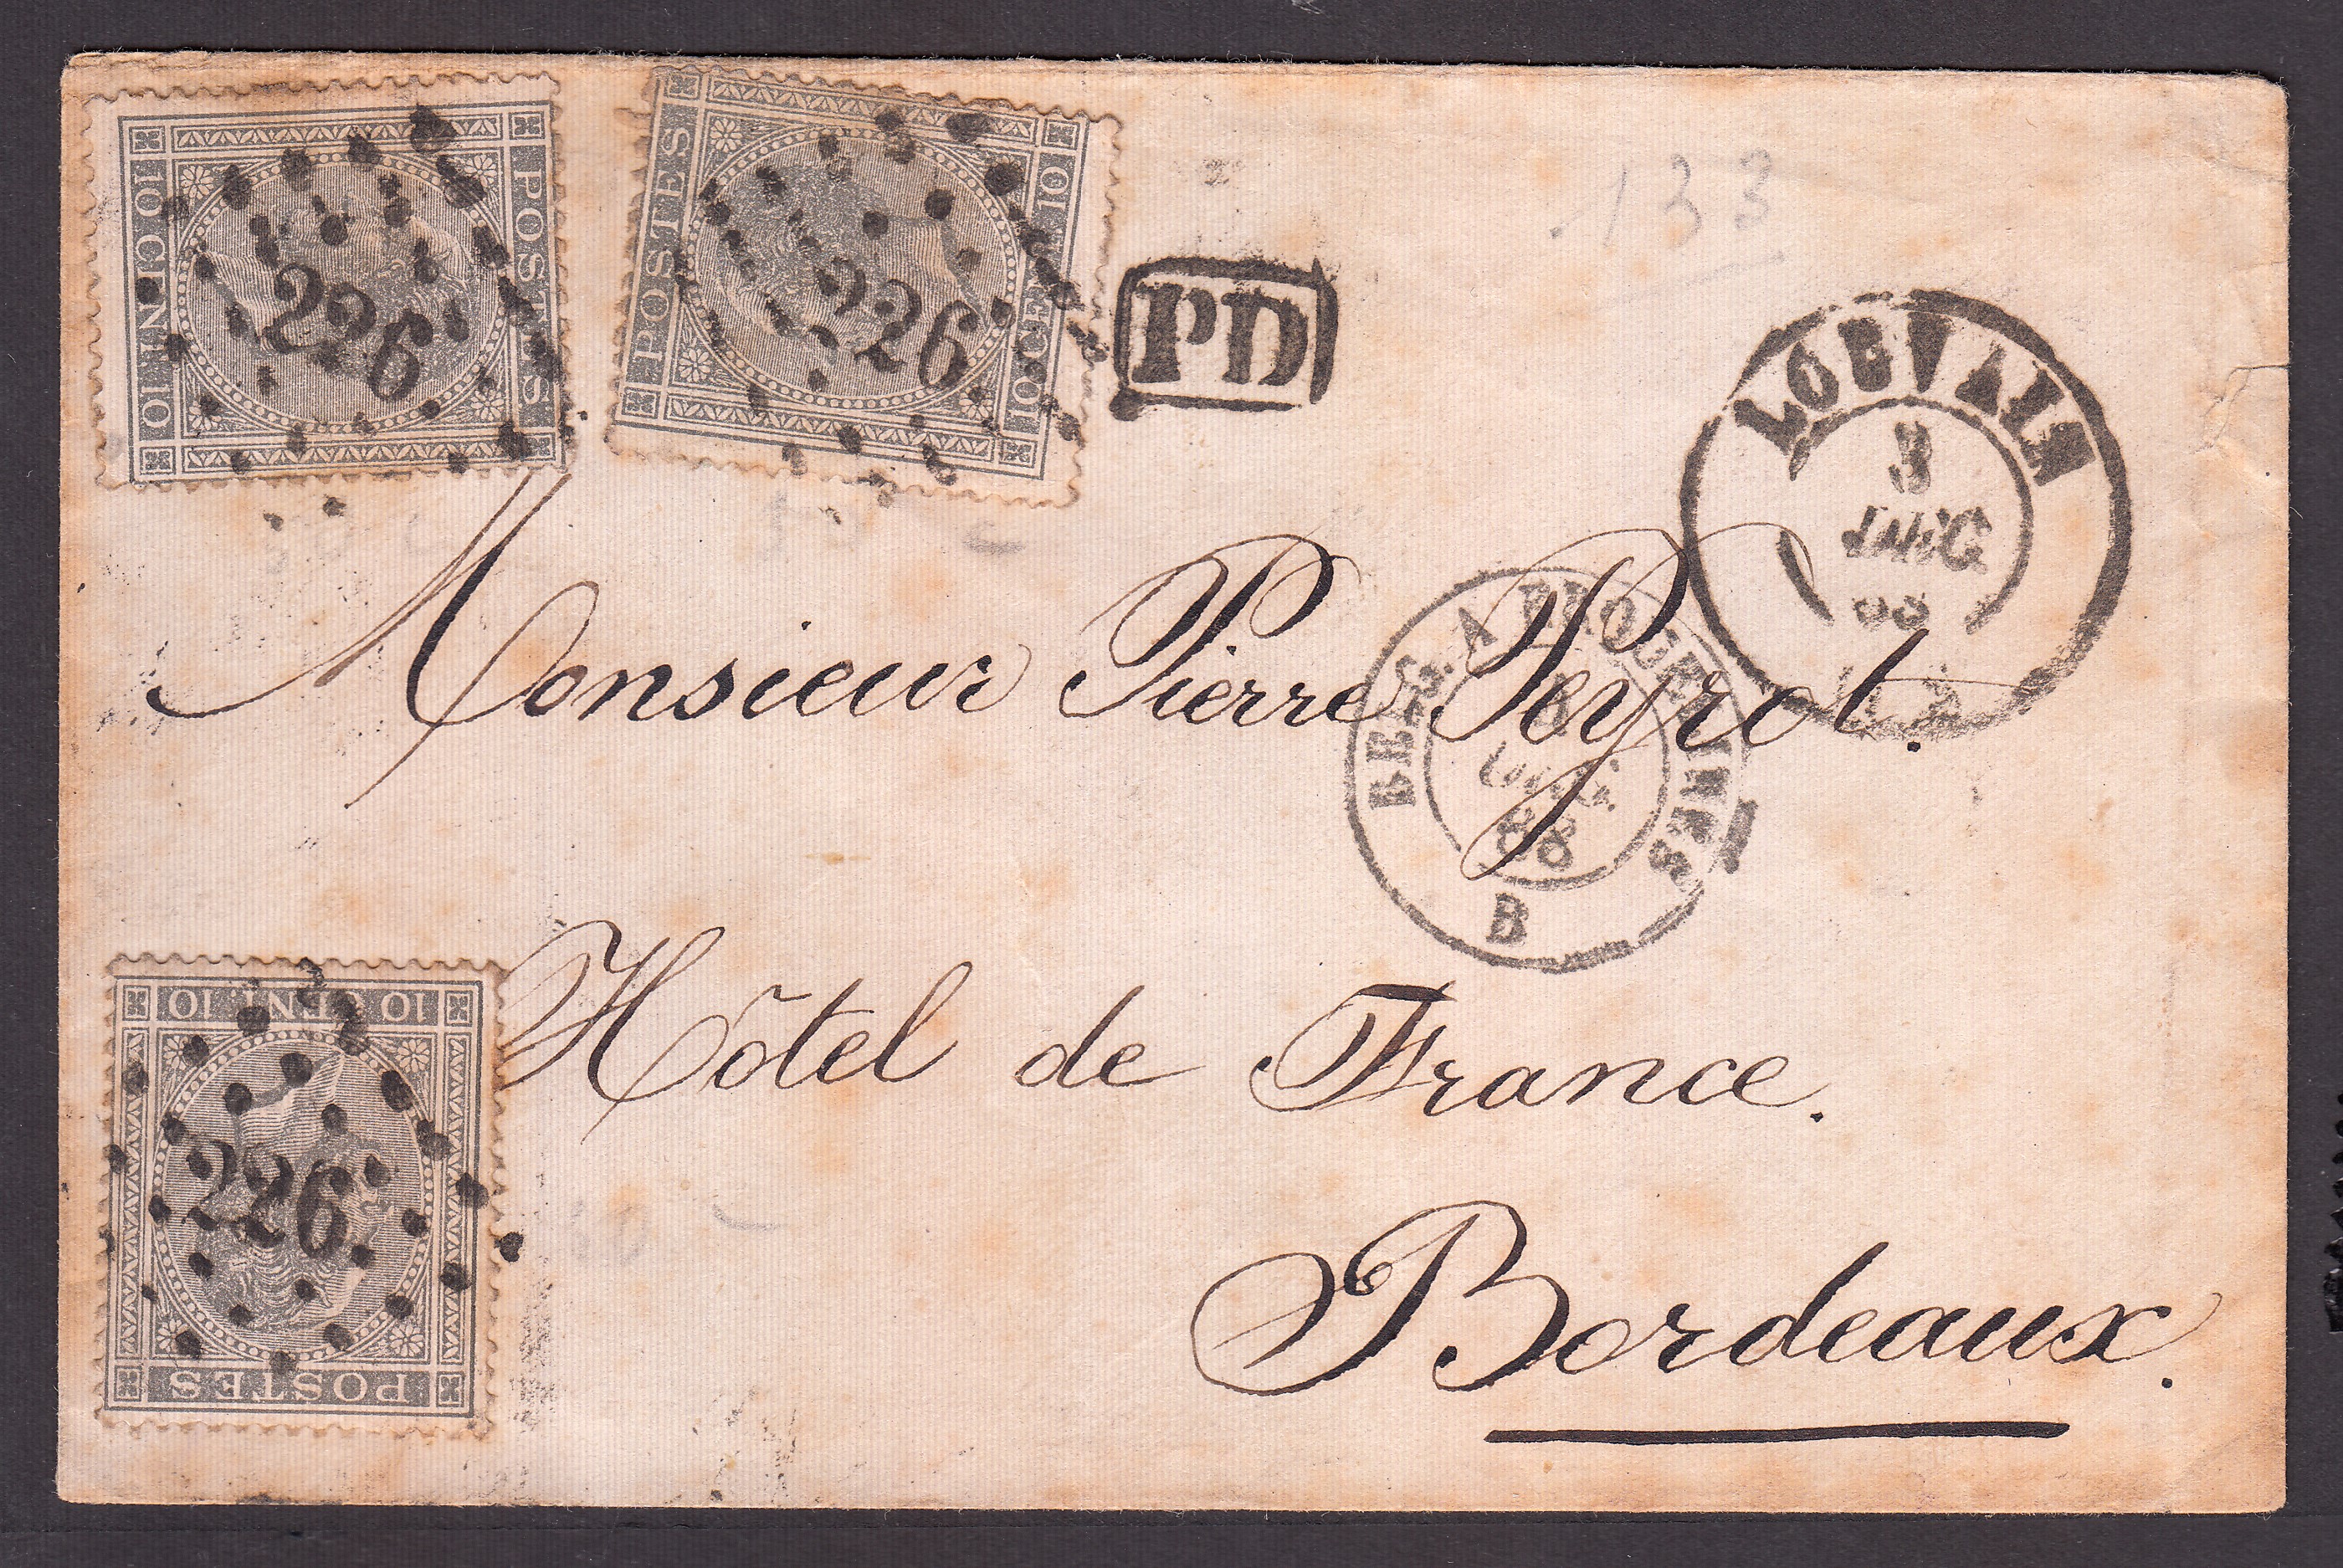 POSTES
10 CENT. 10
226
POSTES
10 CENT. 10
226
PD
133
LOUVAIN
3
Monsieur Pierre Peyrot.
BELG. A QUIEVRAIN
88
B
Hôtel de France.
Bordeaux.
10 CENT. 10
226
POSTES